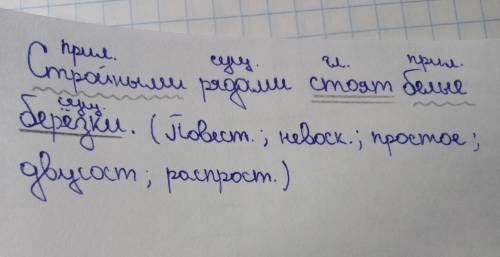 прил. сущ. гл. прил.
Стройными рядами стоят белые
сущ.
берёзки. (Повест.; невоск.; простое;
двусост; распрост.)